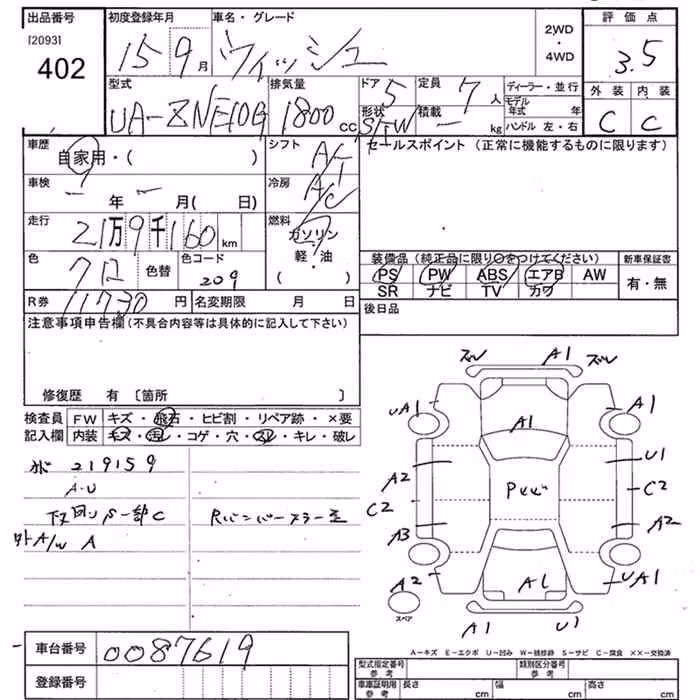 出品番号
[2093]
402
初度登録年月
15 9月
車名・グレード
ウィッシュ
2WD
・
4WD
評価点
3.5
外装 内装
C C
型式
UA-ZNE10G
排気量
1800 CC
ドア 5
形状 S/W
定員 7人
積載 - kg
ディーラー・並行
モデル年式 年
ハンドル 左・右
車歴
自家用・( )
シフト AT
車検
- 年 - 月( 日)
冷房 AC
走行
21万9千160km
燃料
ガソリン・
軽・油
( )
色
クロ 色替
色コード
209
R券 11730円
名変期限 月 日
セールスポイント(正常に機能するものに限ります)
装備品(純正品に限り○をつけてください)
PS PW ABS エアB AW
SR ナビ TV カワ
新車保証書
有・無
後日品
注意事項申告欄(不具合内容等は具体的に記入して下さい)
修復歴 有 〔箇所 〕
検査員
記入欄
FW キズ・飛石・ヒビ割・リペア跡・×要
内装 キズ・汚レ・コゲ・穴・スレ・キレ・破レ
219159
A-U
下回りS一部C
外A/W A
ズレ A1 ズレ
UA1 A1 A1
A2 U1
C2 C2
A3 A2
A2 UA1
スペア
A1 U1
A-キズ E-エクボ U-凹み W-補修跡 S-サビ C-腐食 ××-交換済
車台番号 0087619
登録番号
型式指定番号
参考
類別区分番号
参考
車庫証明用
参考
長さ cm
幅 cm
高さ cm